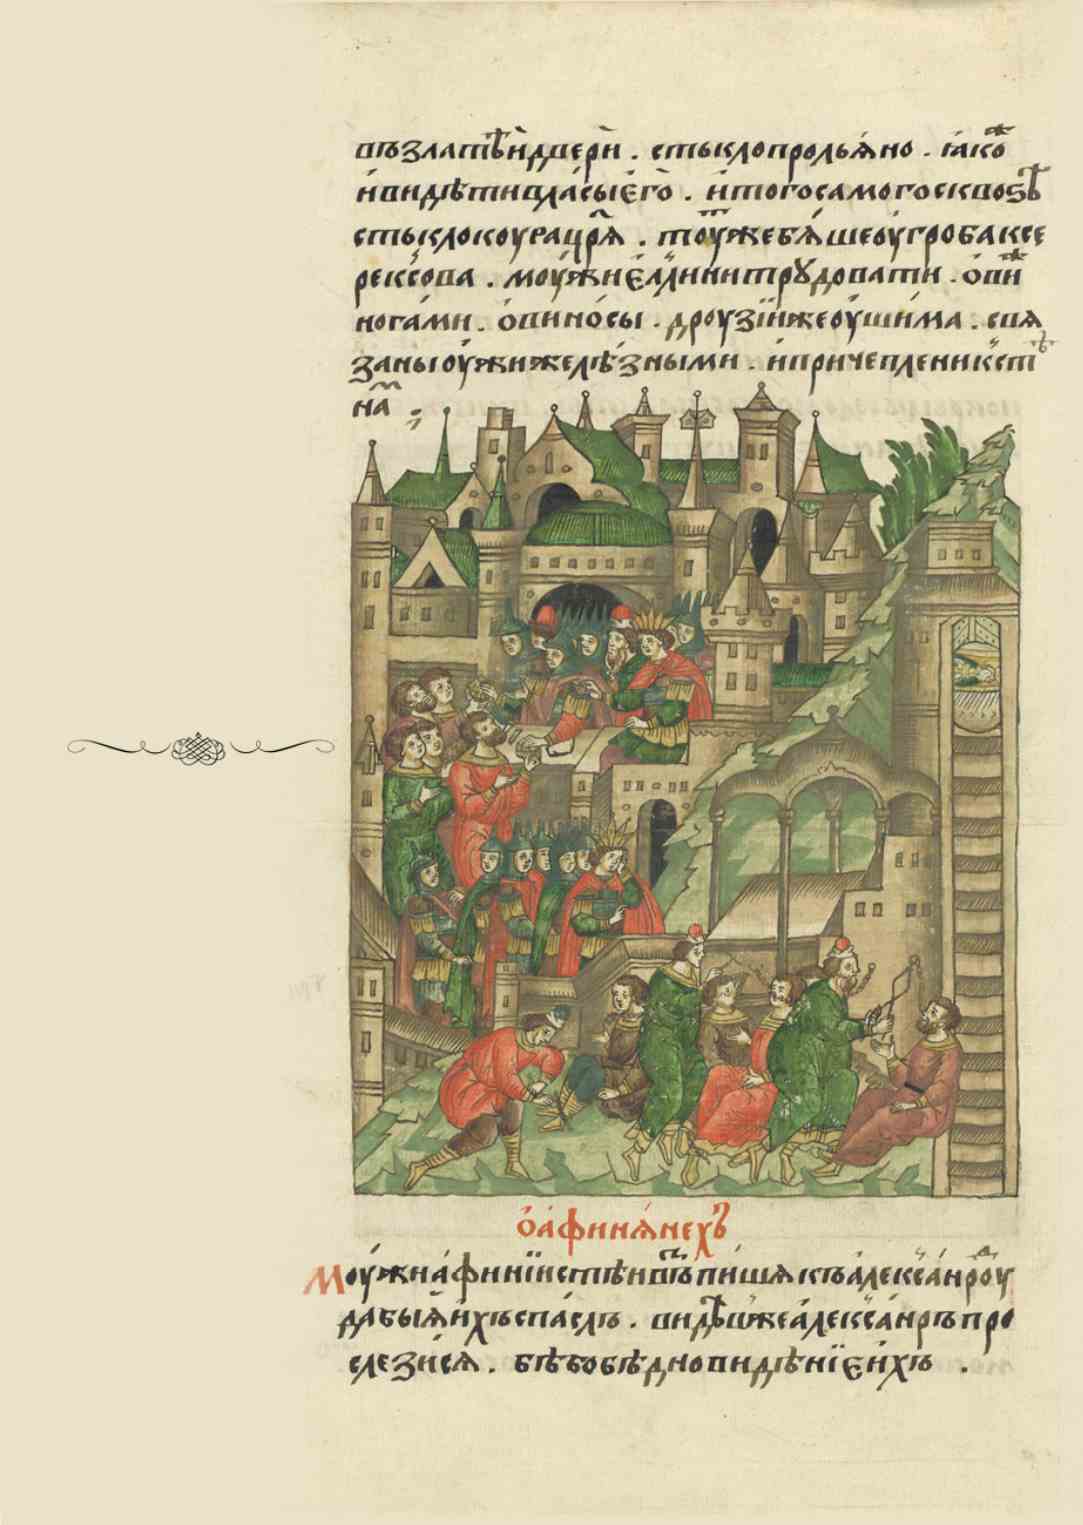 въ златѣй двери . стькло прольяно . ꙗко
и видѣти власы его . и того самого сквозѣ
стькло коура царя . тоу же бяше оу гроба ксе
рексова . моужи еллини трꙋдовати . ови
ногами . ови носы . дроузїи же оушима . свя
заны оужи желѣзными . и причеплени к стѣ
на
о афинянехъ
Моужи афинїистѣи въпишя къ алексанроу
да бы я ихъ спаслъ . видѣв же алексанръ про
слезися . бѣ бо бѣдно видѣнїе ихъ .